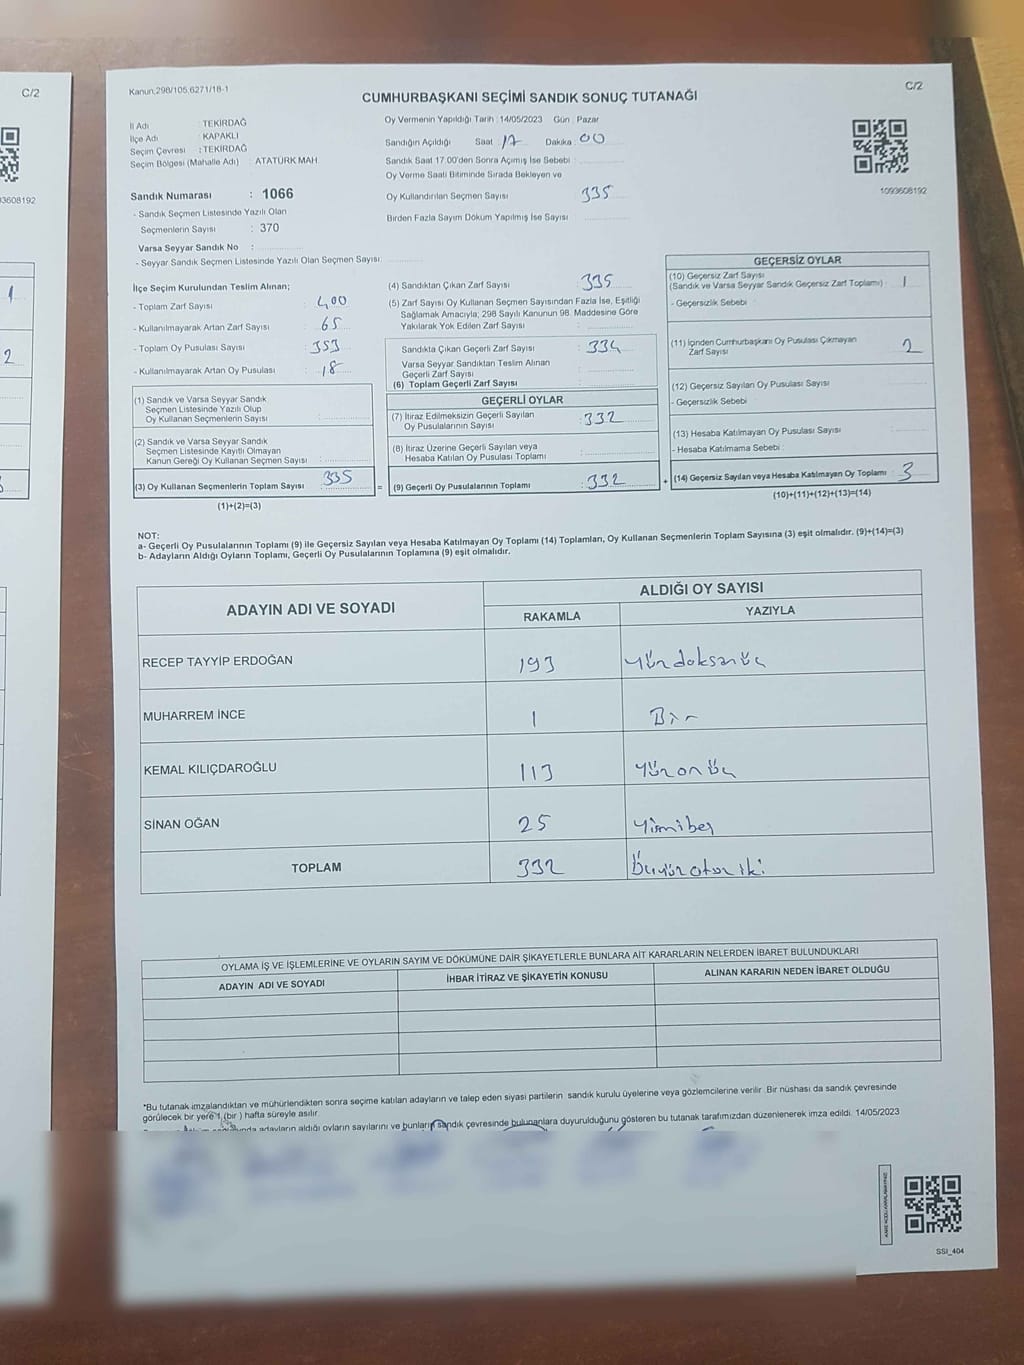 C/2
93608192
1
2
3
Kanun;298/105,6271/18-1
C/2
CUMHURBAŞKANI SEÇİMİ SANDIK SONUÇ TUTANAĞI
İl Adı : TEKİRDAĞ
İlçe Adı : KAPAKLI
Seçim Çevresi : TEKİRDAĞ
Seçim Bölgesi (Mahalle Adı) : ATATÜRK MAH.
Oy Vermenin Yapıldığı Tarih : 14/05/2023 Gün : Pazar
Sandığın Açıldığı Saat : 17 Dakika : 00
Sandık Saat 17.00'den Sonra Açımış İse Sebebi :
Oy Verme Saati Bitiminde Sırada Bekleyen ve
Oy Kullandırılan Seçmen Sayısı 335
Birden Fazla Sayım Döküm Yapılmış İse Sayısı
1093608192
Sandık Numarası : 1066
- Sandık Seçmen Listesinde Yazılı Olan
Seçmenlerin Sayısı : 370
Varsa Seyyar Sandık No :
- Seyyar Sandık Seçmen Listesinde Yazılı Olan Seçmen Sayısı:
İlçe Seçim Kurulundan Teslim Alınan;
- Toplam Zarf Sayısı : 400
- Kullanılmayarak Artan Zarf Sayısı : 65
- Toplam Oy Pusulası Sayısı : 353
- Kullanılmayarak Artan Oy Pusulası : 18
(1) Sandık ve Varsa Seyyar Sandık
Seçmen Listesinde Yazılı Olup
Oy Kullanan Seçmenlerin Sayısı :
(2) Sandık ve Varsa Seyyar Sandık
Seçmen Listesinde Kayıtlı Olmayan
Kanun Gereği Oy Kullanan Seçmen Sayısı :
(3) Oy Kullanan Seçmenlerin Toplam Sayısı : 335
(1)+(2)=(3)
(4) Sandıktan Çıkan Zarf Sayısı : 335
(5) Zarf Sayısı Oy Kullanan Seçmen Sayısından Fazla İse, Eşitliği
Sağlamak Amacıyla; 298 Sayılı Kanunun 98. Maddesine Göre
Yakılarak Yok Edilen Zarf Sayısı :
Sandıkta Çıkan Geçerli Zarf Sayısı : 334
Varsa Seyyar Sandıktan Teslim Alınan
Geçerli Zarf Sayısı :
(6) Toplam Geçerli Zarf Sayısı :
GEÇERLİ OYLAR
(7) İtiraz Edilmeksizin Geçerli Sayılan
Oy Pusulalarının Sayısı : 332
(8) İtiraz Üzerine Geçerli Sayılan veya
Hesaba Katılan Oy Pusulası Toplamı :
= (9) Geçerli Oy Pusulalarının Toplamı : 332
GEÇERSİZ OYLAR
(10) Geçersiz Zarf Sayısı
(Sandık ve Varsa Seyyar Sandık Geçersiz Zarf Toplamı) : 1
- Geçersizlik Sebebi :
(11) İçinden Cumhurbaşkanı Oy Pusulası Çıkmayan
Zarf Sayısı : 2
(12) Geçersiz Sayılan Oy Pusulası Sayısı :
- Geçersizlik Sebebi :
(13) Hesaba Katılmayan Oy Pusulası Sayısı :
- Hesaba Katılmama Sebebi :
+ (14) Geçersiz Sayılan veya Hesaba Katılmayan Oy Toplamı : 3
(10)+(11)+(12)+(13)=(14)
NOT:
a- Geçerli Oy Pusulalarının Toplamı (9) ile Geçersiz Sayılan veya Hesaba Katılmayan Oy Toplamı (14) Toplamları, Oy Kullanan Seçmenlerin Toplam Sayısına (3) eşit olmalıdır. (9)+(14)=(3)
b- Adayların Aldığı Oyların Toplamı, Geçerli Oy Pusulalarının Toplamına (9) eşit olmalıdır.
ADAYIN ADI VE SOYADI
ALDIĞI OY SAYISI
RAKAMLA YAZIYLA
RECEP TAYYİP ERDOĞAN 193 Yüzdoksanüç
MUHARREM İNCE 1 Bir
KEMAL KILIÇDAROĞLU 113 Yüzonüç
SİNAN OĞAN 25 Yirmibeş
TOPLAM 332 Üçyüzotuziki
OYLAMA İŞ VE İŞLEMLERİNE VE OYLARIN SAYIM VE DÖKÜMÜNE DAİR ŞİKAYETLERLE BUNLARA AİT KARARLARIN NELERDEN İBARET BULUNDUKLARI
ADAYIN ADI VE SOYADI İHBAR İTİRAZ VE ŞİKAYETİN KONUSU ALINAN KARARIN NEDEN İBARET OLDUĞU
*Bu tutanak imzalandıktan ve mühürlendikten sonra seçime katılan adayların ve talep eden siyasi partilerin sandık kurulu üyelerine veya gözlemcilerine verilir. Bir nüshası da sandık çevresinde
görülecek bir yere 1 (bir) hafta süreyle asılır.
adayların aldığı oyların sayılarını ve bunların sandık çevresinde bulunanlara duyurulduğunu gösteren bu tutanak tarafımızdan düzenlenerek imza edildi. 14/05/2023
SSI_404